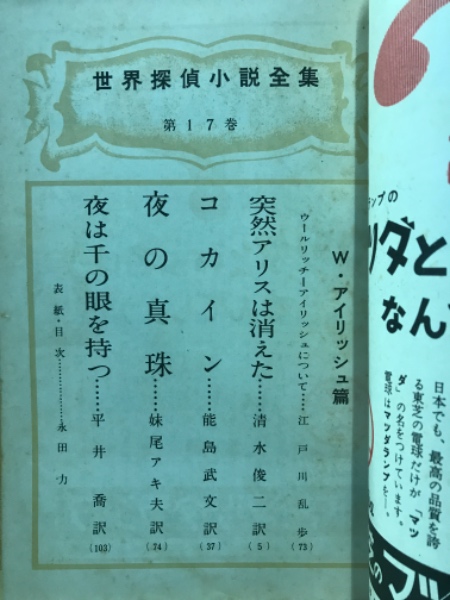 世界探偵小説全集
第17巻
W・アイリッシュ篇
ウールリッチーアイリッシュについて……江戸川乱歩(73)
突然アリスは消えた……清水俊二訳(5)
コカイン……能島武文訳(37)
夜の真珠……妹尾アキ夫訳(74)
夜は千の眼を持つ……平井喬訳(103)
表紙・目次………………永田力
ンプの
ダと
なん
日本でも、最高の品質を誇
る東芝の電球だけが「マツ
ダ」の名をつけています。
電球はマツダランプを──